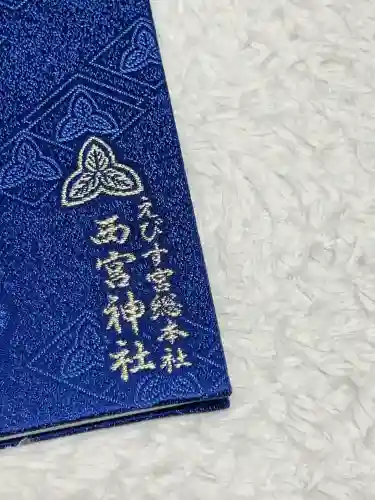 えびす宮総本社
西宮神社